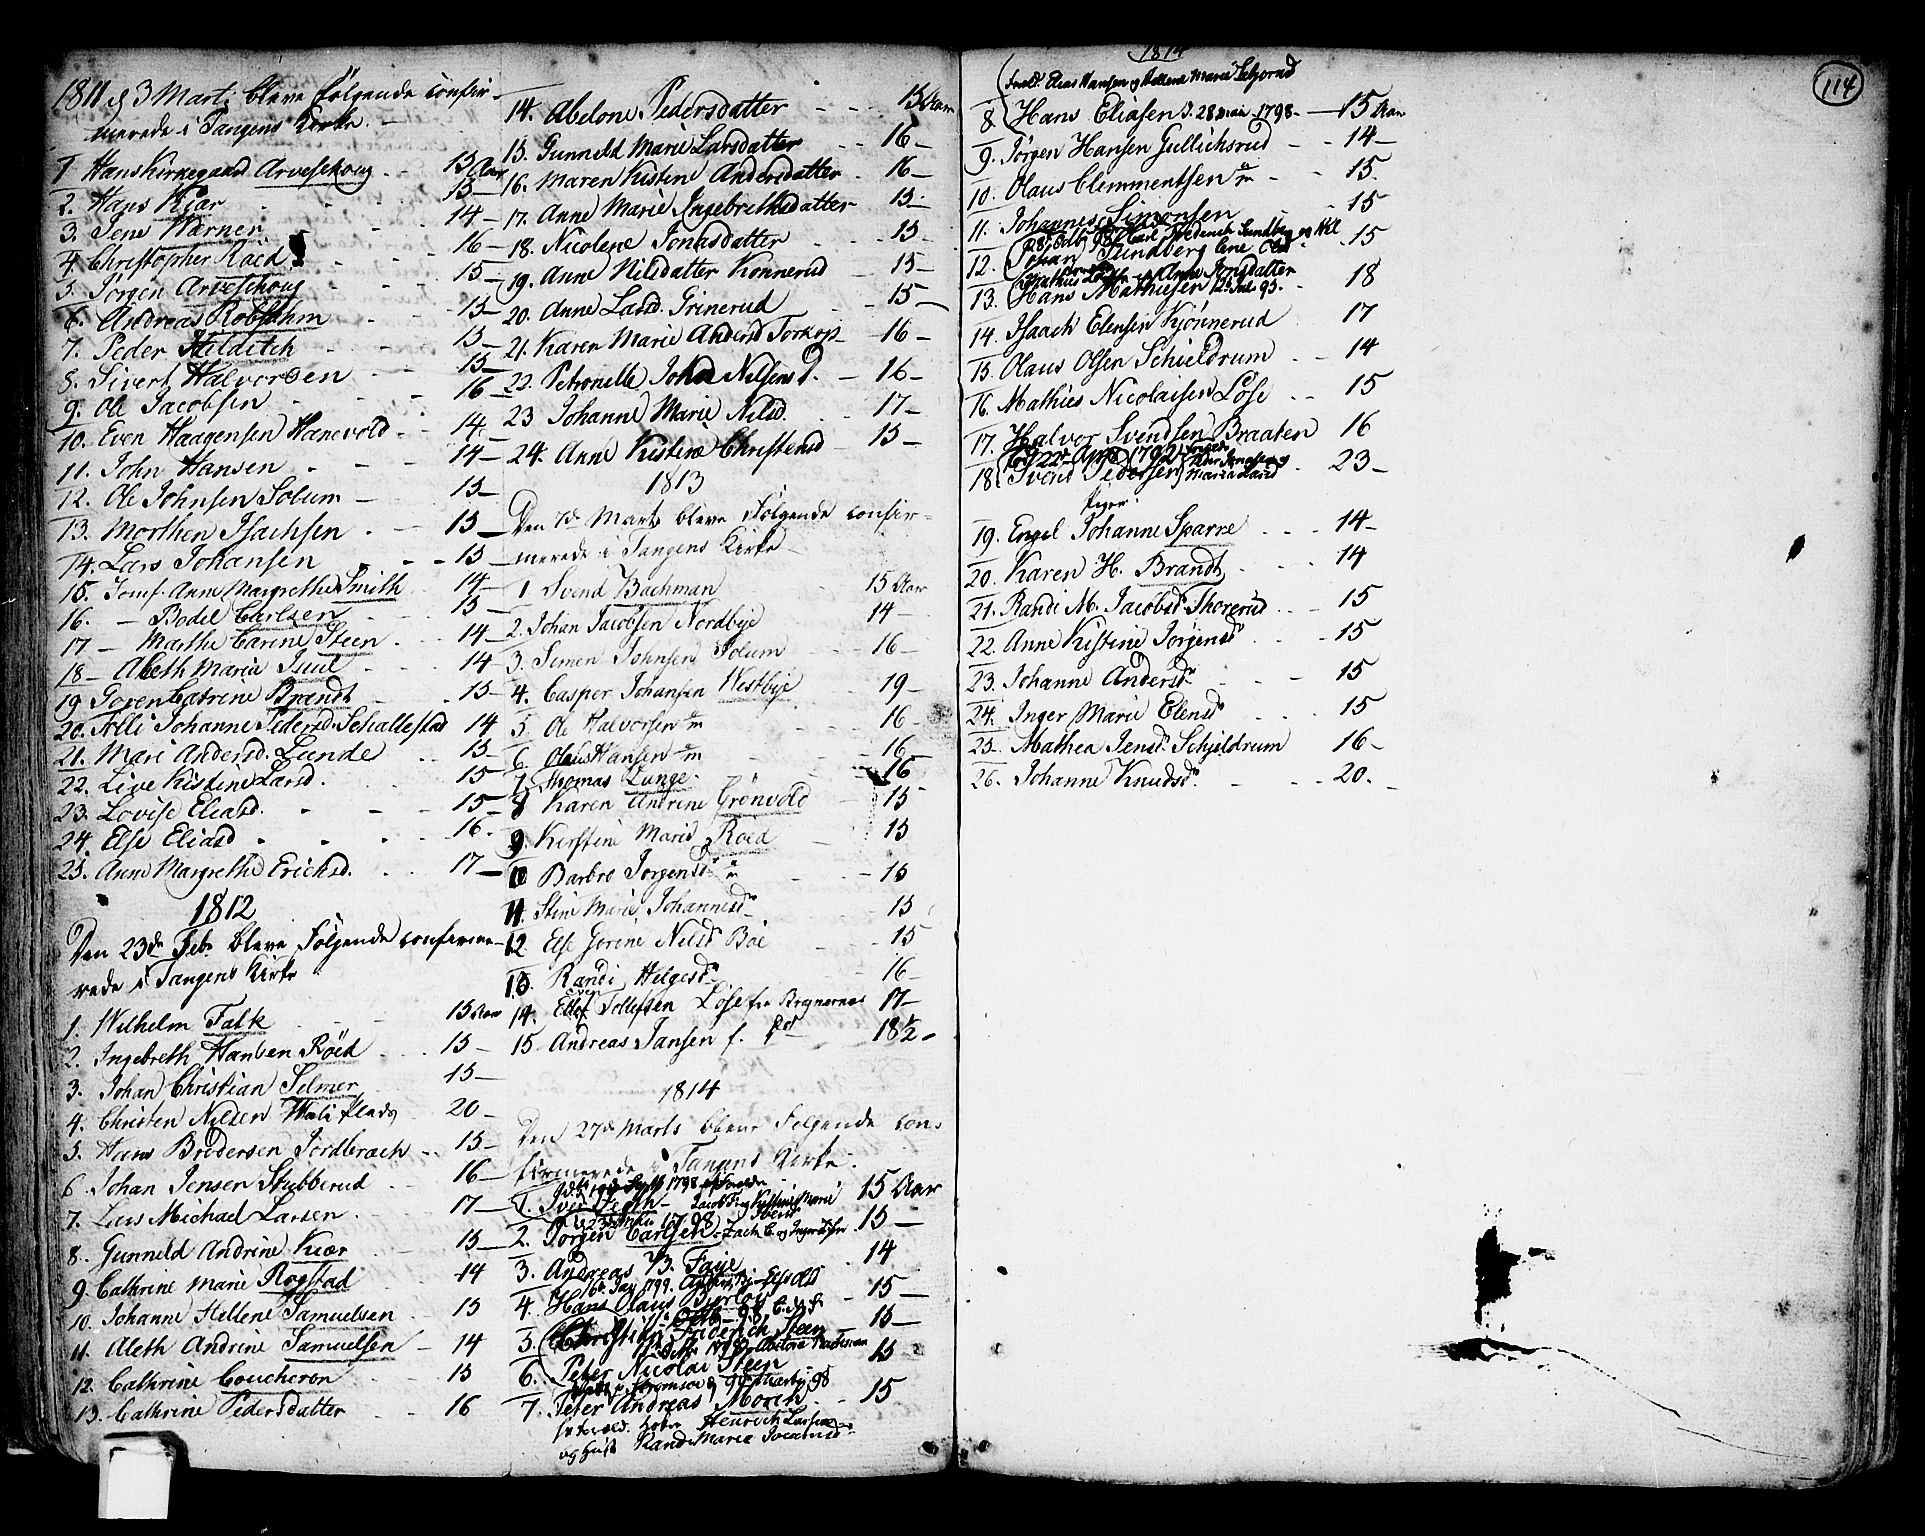 1811 d 3 Marti bleve følgende confir-
merede i Tangens Kirke.
1 Hans Kirkegaard Arveschoug 15 Aar
2. Hans Kiær 15
3. Jens Warner 14
4. Christopher Röed 16
5. Jørgen Arveschoug 15
6. Andreas Robsahm 15
7. Peder Hilditch 15
8. Sivert Halvorsen 15
9. Ole Jacobsen 16
10. Even Haagensen Hanevold 14
11. John Hansen 14
12. Ole Johnsen Solum 15
13. Morthen Isachsen 15
14. Lars Johansen 15
15. Jomf. Anne Margrethe Smith 14
16. — Bodel Carlsen 15
17 — Marthe Carine Steen 14
18 — Abeth Maria Juul 14
19 Goren Catrine Brandt 15
20. Alli Johanne Pedersd. Schallestad 14
21. Mari Andersd. Lunde 15
22. Live Kistine Larsd. 15
23. Lovise Eliasd. 15
24. Else Eliasd 16
25. Anne Margrethe Erichsd. 17
1812
Den 23de Feb. bleve følgende confirme-
rede i Tangens Kirke
1. Wilhelm Falk 15 Aar
2. Ingebreth Hansen Röed 15
3. Johan Christian Selmer 15
4. Christen Nilsen 20
5. Hans Brodersen Jordbrach 15
6. Johan Jensen Stubberud 16
7. Lars Michael Larsen 17
8. Gunneld Andrine Kiær 15
9. Cathrine Marie Rogstad 14
10. Johanne Hellene Samuelsen 15
11. Aleth Andrine Samuelsen 14
12. Cathrine Coucheron 15
13. Cathrine Pedersdatter 16
14. Abelone Pedersdatter 15 Aar
15. Gunneld Marie Larsdatter 16
16. Maren Kistine Andersdatter 16
17. Anne Marie Ingebrethsdatter 15
18. Nicolene Jonasdatter 15
19. Anne Nilsdatter Konnerud 15
20. Anne Larsd. Grinerud 15
21. Karen Marie Andersd Torkop 16
22. Petronelle Nilsens D. 16
23 Johanne Marie Nilsd. 17
24. Anne Kistine Christensd 15
1813
Den 7de Marts bleve følgende confir-
merede i Tangens Kirke
1. Svend Bachman 15 Aar
2. Johan Jacobsen Nordbye 14
3. Simen Johnsen Solum 16
4. Casper Johansen Westbye 19
5. Ole Halvorsen 16
6. Olaus Hansen 16
7. Thomas Lunge 16
8 Karen Andrine Grönvold 15
9. Kirstine Marie Roed 15
10 Barbro Jorgensd. 15
11. Stine Marie Johannesd 15
12. Else Gorine Nilsd. Böe 15
13. Randi Helgesd. 16
14. Even Tollefsen Löse fra Bragernæs 17
15. Andreas Jansen f. 18½
1814
Den 27de Marts bleve følgende con-
firmerede i Tangens Kirke.
1. Iver 15 Aar
2. Jorgen Carlsen 15
3. Andreas B. Faye 14
6. Jan 1799.
4. Hans Olaus 15
5. Christian Friderich Steen 15
6. Peter Nicolai Steen 15
7. Peter Andreas Moren 15
Henrich Larsen
og Randi Maria
1814
Elias Hansen og Hellene Marie
8. Hans Eliasen 28 Mai 1798 15 Aar
9. Jørgen Hansen Gullichsrud 14
10. Olaus Clemmentsen 15
11. Johannes Simonsen 15
12. Johan Sundberg 15
13. Hans Mathiesen 95. 18
14. Isaach Elensen Kjönnerud 17
15. Olaus Olsen Schieldrum 14
16. Mathies Nicolaisen Löse 15
17. Halvor Svendsen Braaten 16
18. Svend Pedersen 23
Piger.
19. Engel Johanne Sparre 14
20. Karen H. Brandt 14
21. Randi M. Jacobsd. Thorerud 15
22. Anne Kistine Jorgensd 15
23. Johanne Andersd 15
24. Inger Marie Elensd 15
25. Mathea Jensd. Schjeldrum 16
26. Johanne Knudsd. 20.
114